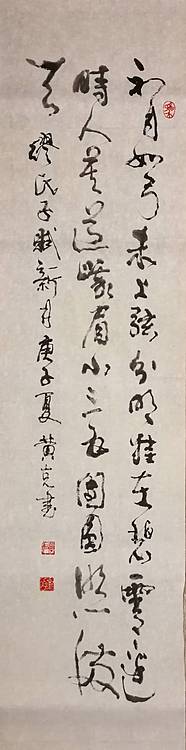 初月如弓未上弦分明挂在碧霄邊
時人莫道蛾眉小三五團圓照滿
天 繆氏子賦新月庚子夏黄克書